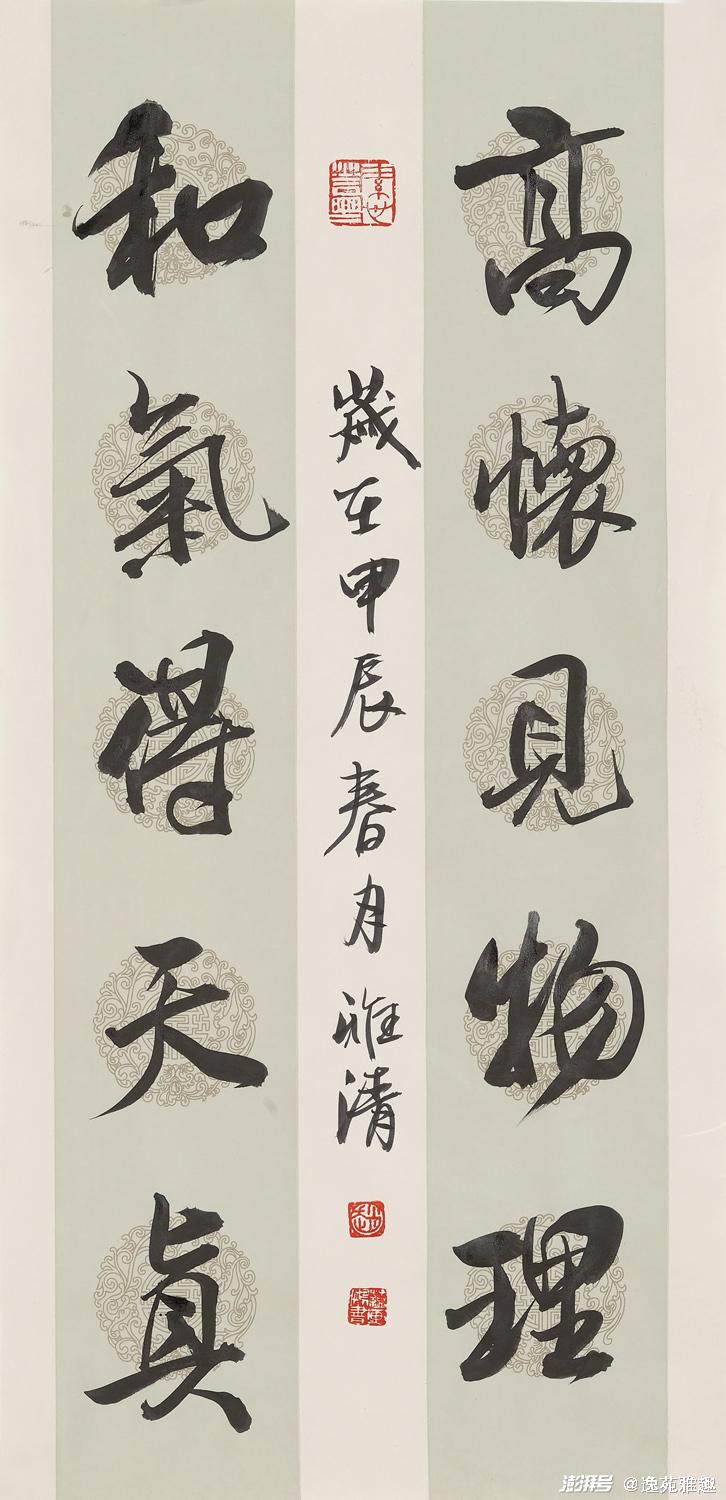 高懷見物理
和氣得天真
歲在甲辰春月雅清
澎湃号 @逸苑雅趣